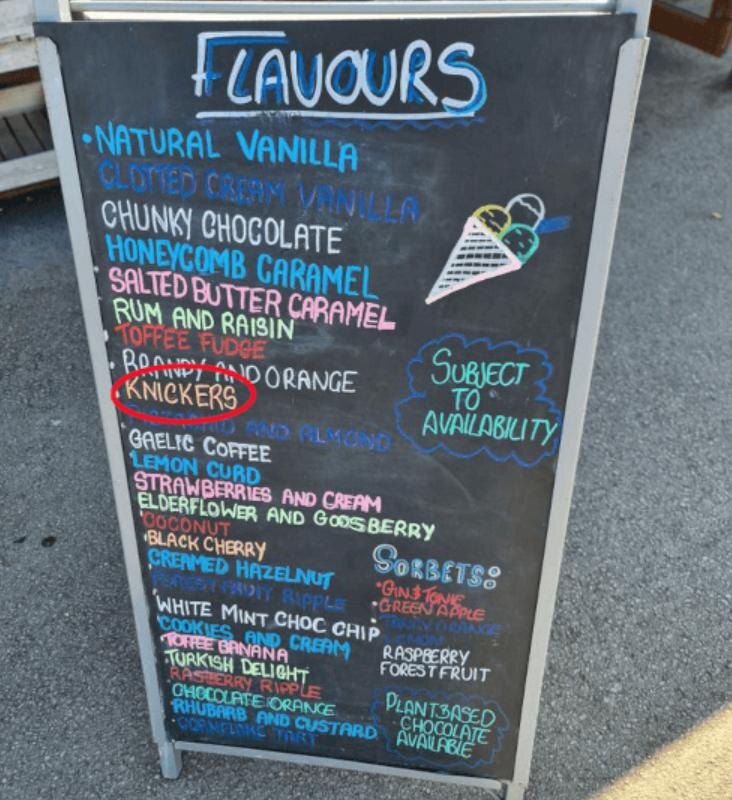 FLAVOURS
• NATURAL VANILLA
CLOTTED CREAM VANILLA
CHUNKY CHOCOLATE
HONEYCOMB CARAMEL
SALTED BUTTER CARAMEL
RUM AND RAISIN
TOFFEE FUDGE
BRANDY AND ORANGE
KNICKERS
PISTACHIO AND ALMOND
GAELIC COFFEE
LEMON CURD
STRAWBERRIES AND CREAM
ELDERFLOWER AND GOOSBERRY
COCONUT
BLACK CHERRY
CREAMED HAZELNUT
FOREST FRUIT RIPPLE
WHITE MINT CHOC CHIP
COOKIES AND CREAM
TOFFEE BANANA
TURKISH DELIGHT
RASBERRY RIPPLE
CHOCOLATE ORANGE
RHUBARB AND CUSTARD
CORNFLAKE TART
SUBJECT
TO
AVAILABILITY
SORBETS:
• GIN & TONIC
• GREEN APPLE
ORANGE
LEMON
RASPBERRY
FOREST FRUIT
PLANTBASED
CHOCOLATE
AVAILABLE